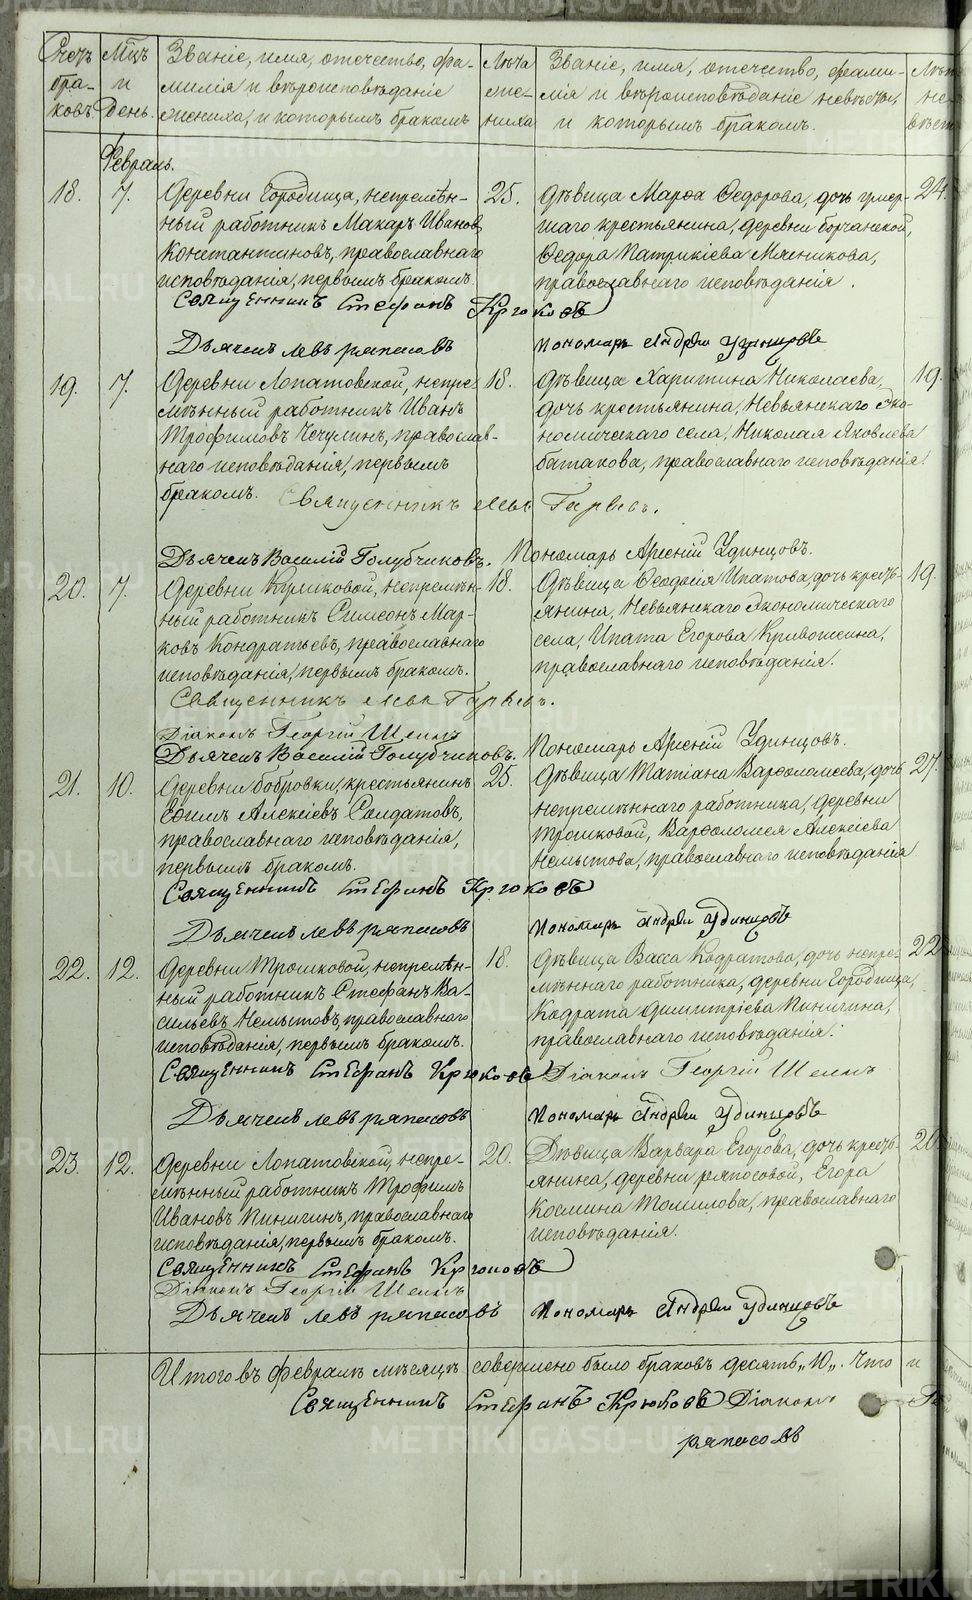 Счетъ бра- ковъ.
Мцъ и День.
Званіе, имя, отечество, фа-
милія и вѣроисповѣданіе
жениха, и которымъ бракомъ
Лѣта же- ниха
Званіе, имя, отечество, фами-
лія и вѣроисповѣданіе невѣсты,
и которымъ бракомъ.
Лѣта не- вѣст
Февраль.
18. 7. Деревни Городища, непремѣн- 25. Дѣвица Марѳа Ѳедорова, дочь 24.
ный работникъ Макаръ Ивановъ шаго крестьянина, деревни Борчанской,
Константиновъ, православнаго Ѳедора Патрикіева Мясникова,
исповѣданія, первымъ бракомъ. православнаго исповѣданія.
Священникъ Стефанъ Крюковъ
Дьячекъ Левъ Ряпасовъ Пономарь Андрей Удинцовъ
19. 7. Деревни Лопатовской, непре- 18. Дѣвица Харитина Николаева, 19.
мѣнный работникъ Иванъ дочь крестьянина, Невьянскаго Эко-
Трофимовъ Чечулинъ, православ- номическаго села, Николая Яковлева
наго исповѣданія, первымъ Батакова, православнаго исповѣданія.
бракомъ. Священникъ
Дьячекъ Василій Голубчиковъ. Пономарь Арсеній Удинцовъ.
20. 7. Деревни непремѣн- 18. Дѣвица Ѳеодосія Ипатова, дочь кресть- 19.
ный работникъ Симеонъ Мар- янина, Невьянскаго Экономическаго
ковъ Кондратьевъ, православнаго села, Ипата Егорова Кривошеина,
исповѣданія, первымъ бракомъ. православнаго исповѣданія.
Священникъ
Діаконъ Георгій
Дьячекъ Василій Голубчиковъ. Пономарь Арсеній Удинцовъ.
21. 10. Деревни Бобровки, крестьянинъ 25. Дѣвица Татіана Варѳоломеева, дочь 27.
Алексіевъ Солдатовъ, непремѣннаго работника, деревни
православнаго исповѣданія, Трошковой, Варѳоломея Алексіева
первымъ бракомъ. Немытова, православнаго исповѣданія
Священникъ Стефанъ Крюковъ
Дьячекъ Левъ Ряпасовъ Пономарь Андрей Удинцовъ
22. 12. Деревни Трошковой, непремѣн- 18. Дѣвица Васса Кодратова, дочь непре- 22
ный работникъ Стефанъ Ва- мѣннаго работника, деревни Городища,
сильевъ Немытовъ, православнаго Кодрата Димитріева Пинигина,
исповѣданія, первымъ бракомъ. православнаго исповѣданія.
Священникъ Стефанъ Крюковъ Діаконъ Георгій
Дьячекъ Левъ Ряпасовъ Пономарь Андрей Удинцовъ
23. 12. Деревни Лопатовской, непре- 20. Дѣвица Варвара Егорова, дочь кресть- 20
мѣнный работникъ Трофимъ янина, деревни Ряпосовой, Егора
Ивановъ Пинигинъ, православнаго Космина Томилова, православнаго
исповѣданія, первымъ бракомъ. исповѣданія.
Священникъ Стефанъ Крюковъ
Діаконъ Георгій
Дьячекъ Левъ Ряпасовъ Пономарь Андрей Удинцовъ
Итого въ февралѣ мѣсяцѣ совершено было браковъ десять „10„. Что и
Священникъ Стефанъ Крюковъ Діаконъ
Ряпасовъ
METRIKI.GASO-URAL.RU